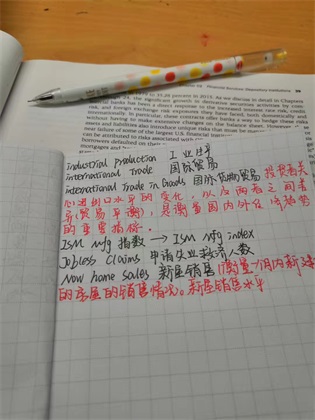 Financial Services: Depository Institutions
to 35.26 percent in 2013. As we discuss in detail in Chapters
24, the significant growth in derivative securities activities by com-
banks has been a direct response to the increased interest rate risk, credit
and foreign exchange risk exposures they have faced, both domestically and
internationally. In particular, these contracts offer banks a way to hedge these risks
without having to make extensive changes on the balance sheet. However,
assets and liabilities also introduce unique risks that must be
near failure of some of the largest U.S. financial
can be attributed to risks associated with
borrowers defaulted on their
mortgages and
industrial production 工业生产
international Trade 国际贸易
international Trade in Goods 国际货物贸易 投资者关
心进出口水平的变化，以及两者之间差
异(贸易平衡)，是衡量国内外经济趋势
的重要指标.
ISM Mfg 指数 → ISM Mfg index
Jobless Claims 申请失业救济人数
New home sales 新屋销售 (衡量一个月内新建
的房屋的销售情况。新屋销售水平